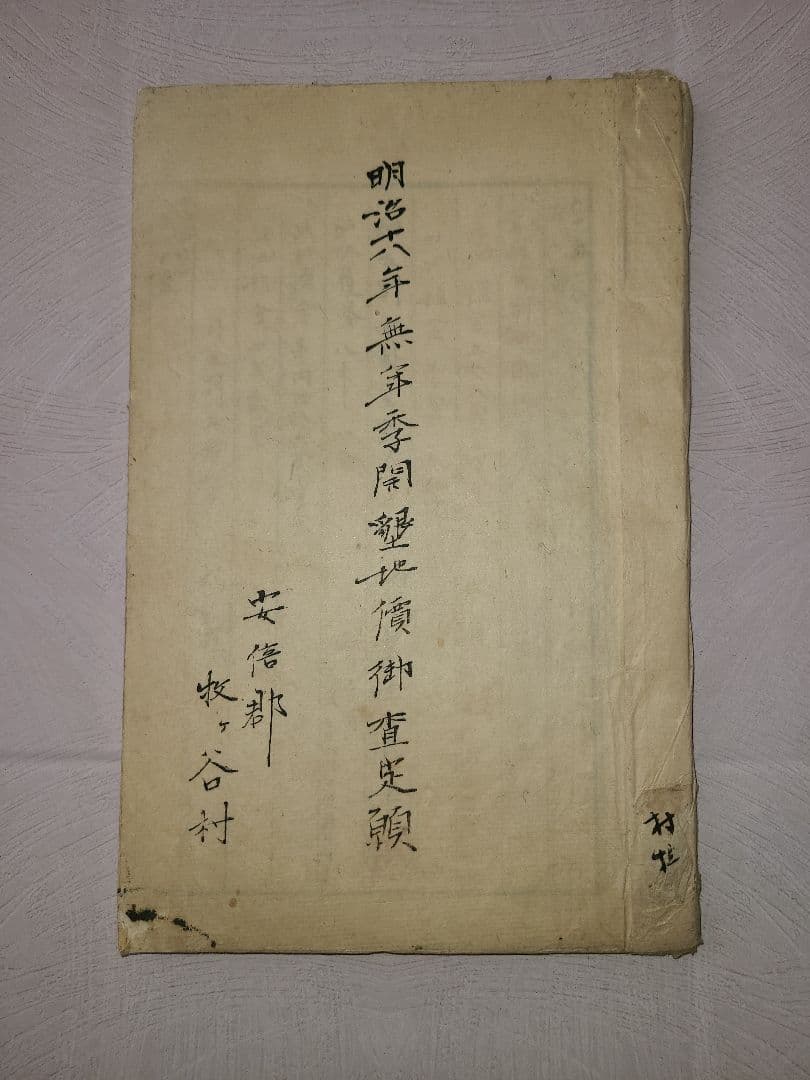 明治十八年無年季開墾地價御査定願
安倍郡
牧ヶ谷村
村